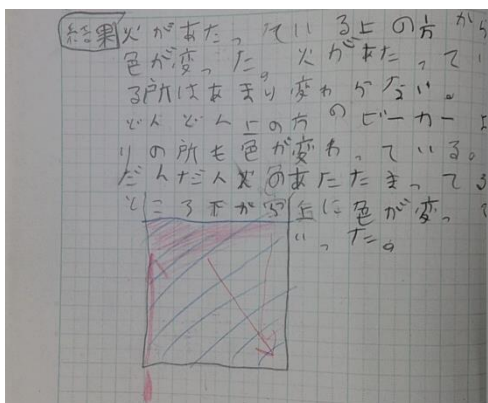 結果 火があたっている上の方から
色が変った。火があたってい
る所はあまり変わらない。
どんどん上の方のビーカーよ
りの所も色が変わっている。
だんだん火のあたたまってる
ところ下から上に色が変って
いった。